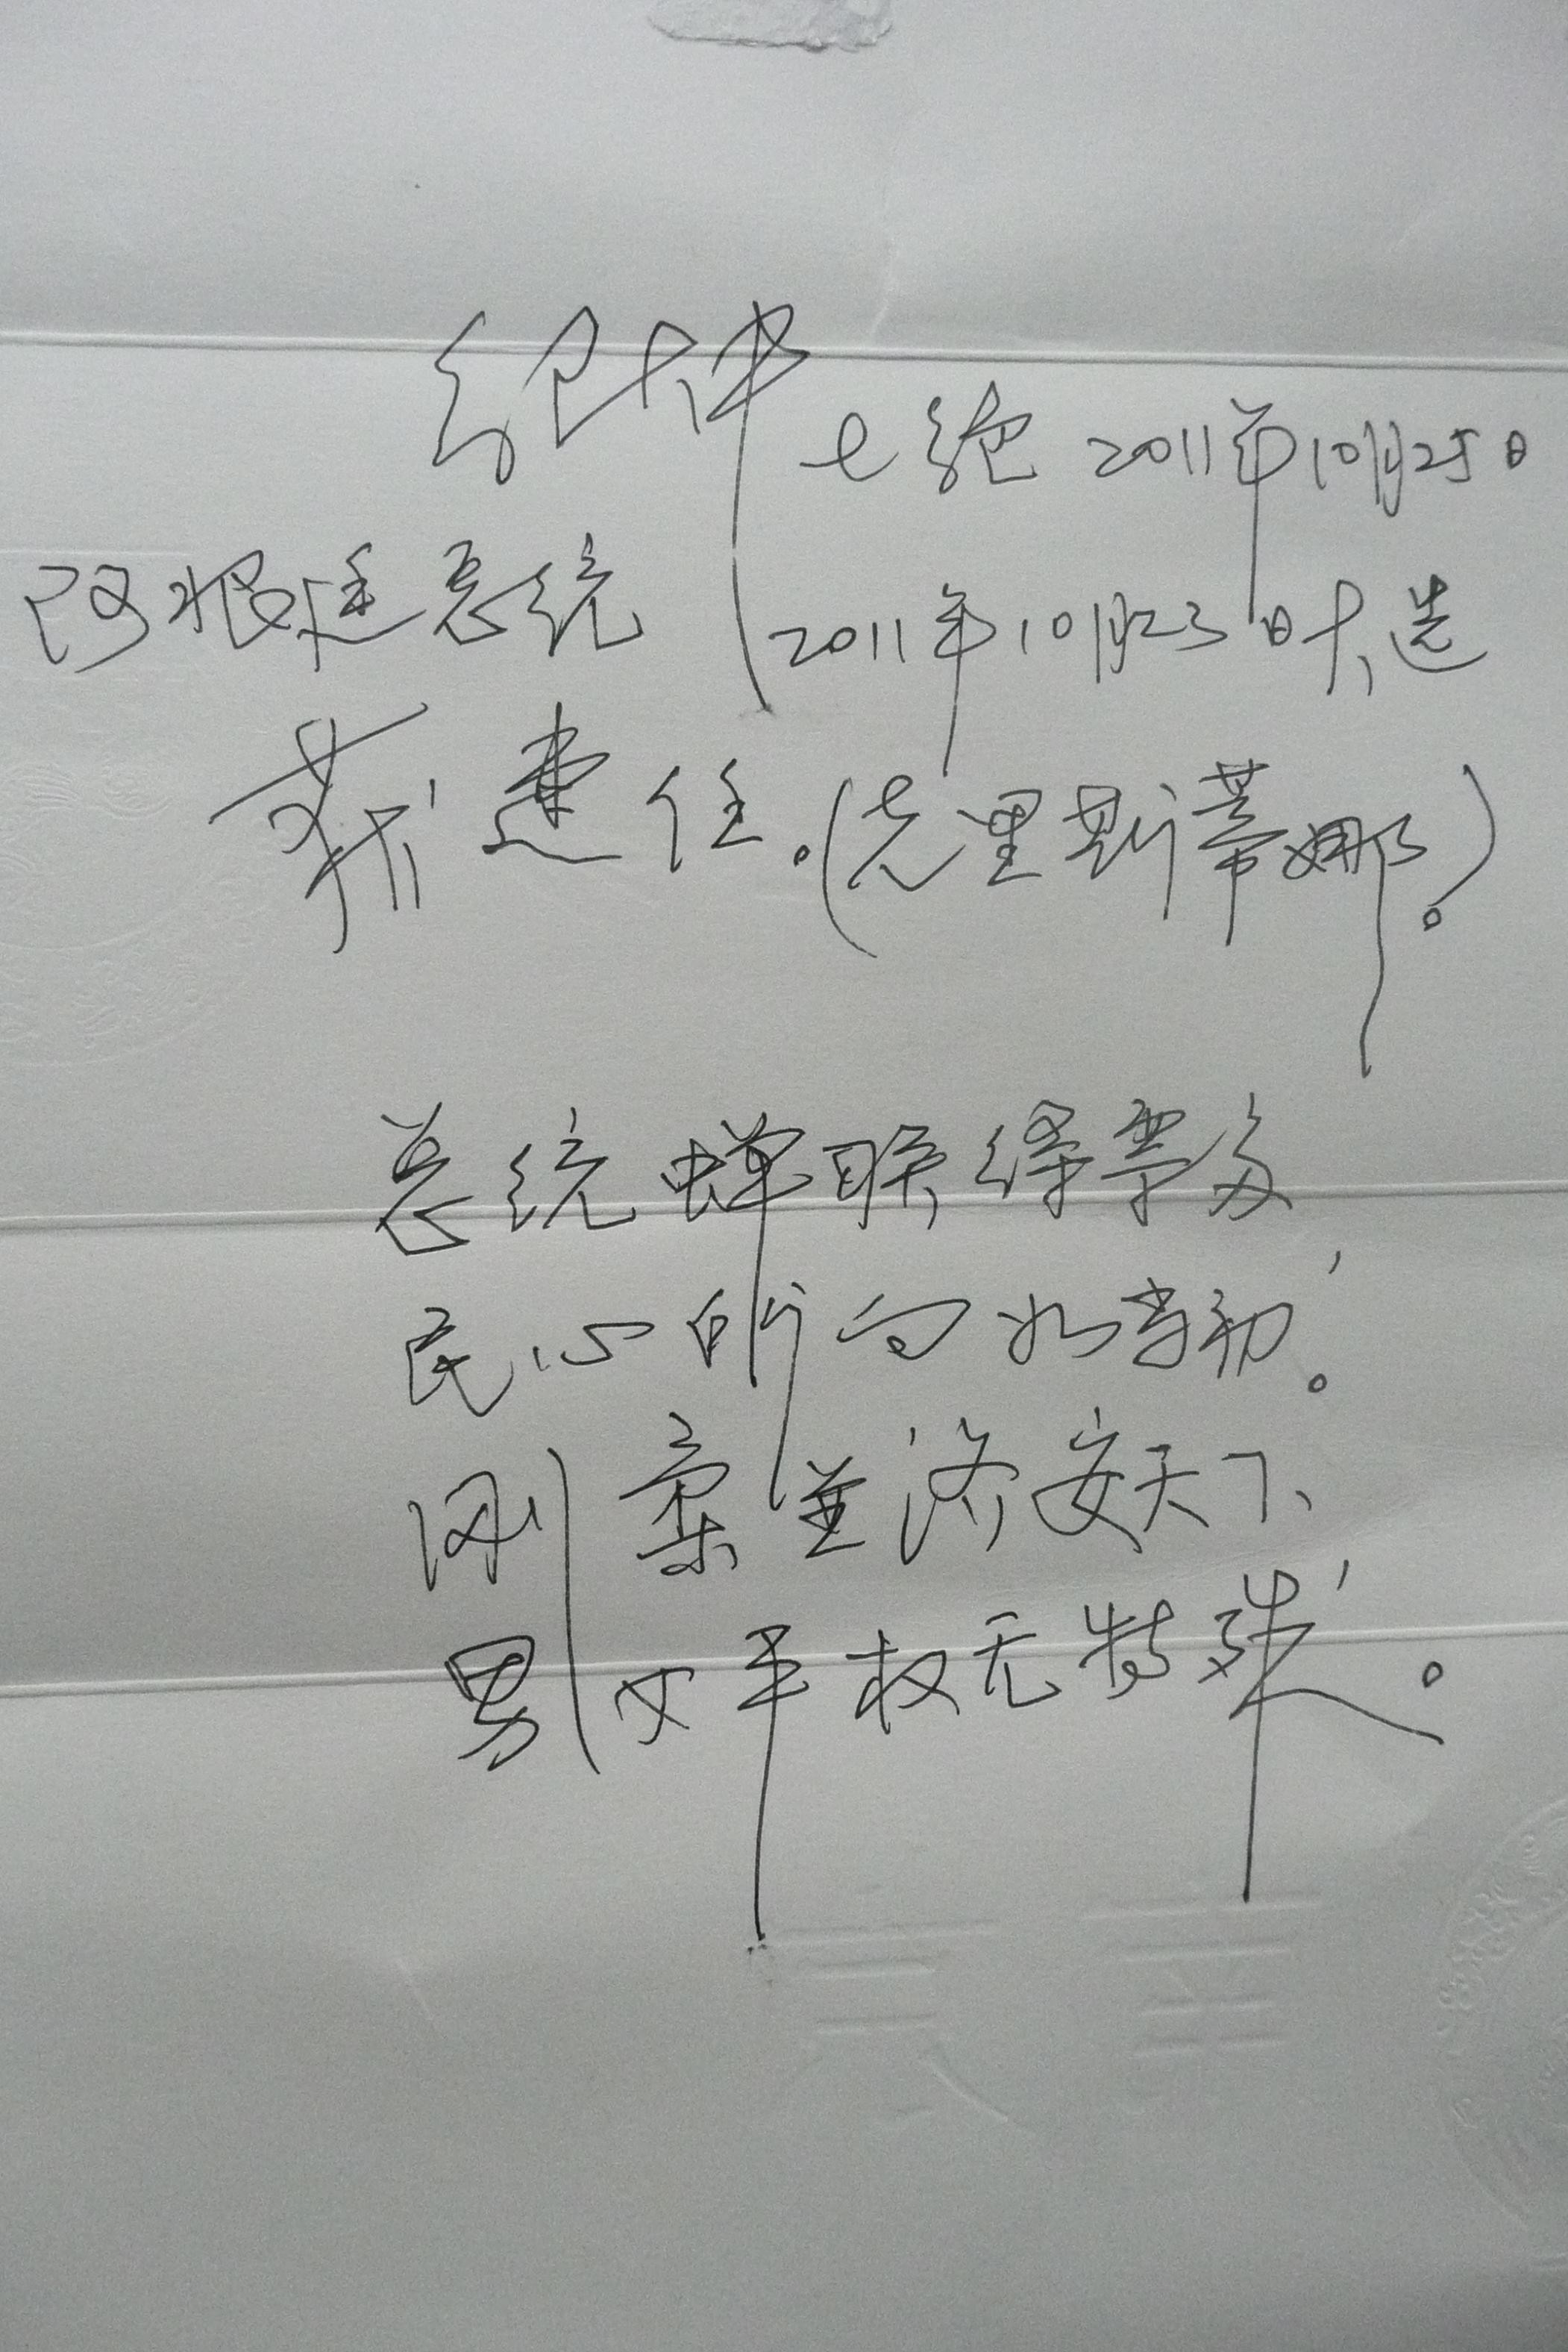 七绝 2011年10月25日
阿根廷总统 2011年10月23日大选
获连任。(克里斯蒂娜。)
总统蝉联得票多
民心所向如当初。
刚柔并济安天下
男女平权无特殊。